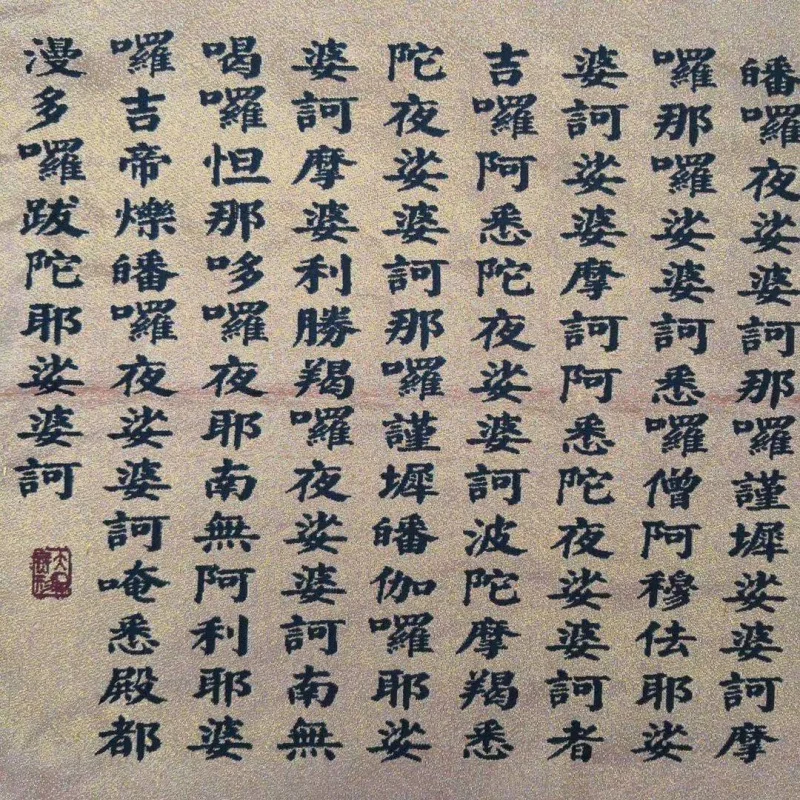 皤囉夜娑婆訶那囉謹墀娑婆訶摩
囉那囉娑婆訶悉囉僧阿穆佉耶娑
婆訶娑婆摩訶阿悉陀夜娑婆訶者
吉囉阿悉陀夜娑婆訶波陀摩羯悉
陀夜娑婆訶那囉謹墀皤伽囉耶娑
婆訶摩婆利勝羯囉夜娑婆訶南無
喝囉怛那哆囉夜耶南無阿利耶婆
囉吉帝爍皤囉夜娑婆訶唵悉殿都
漫多囉跋陀耶娑婆訶